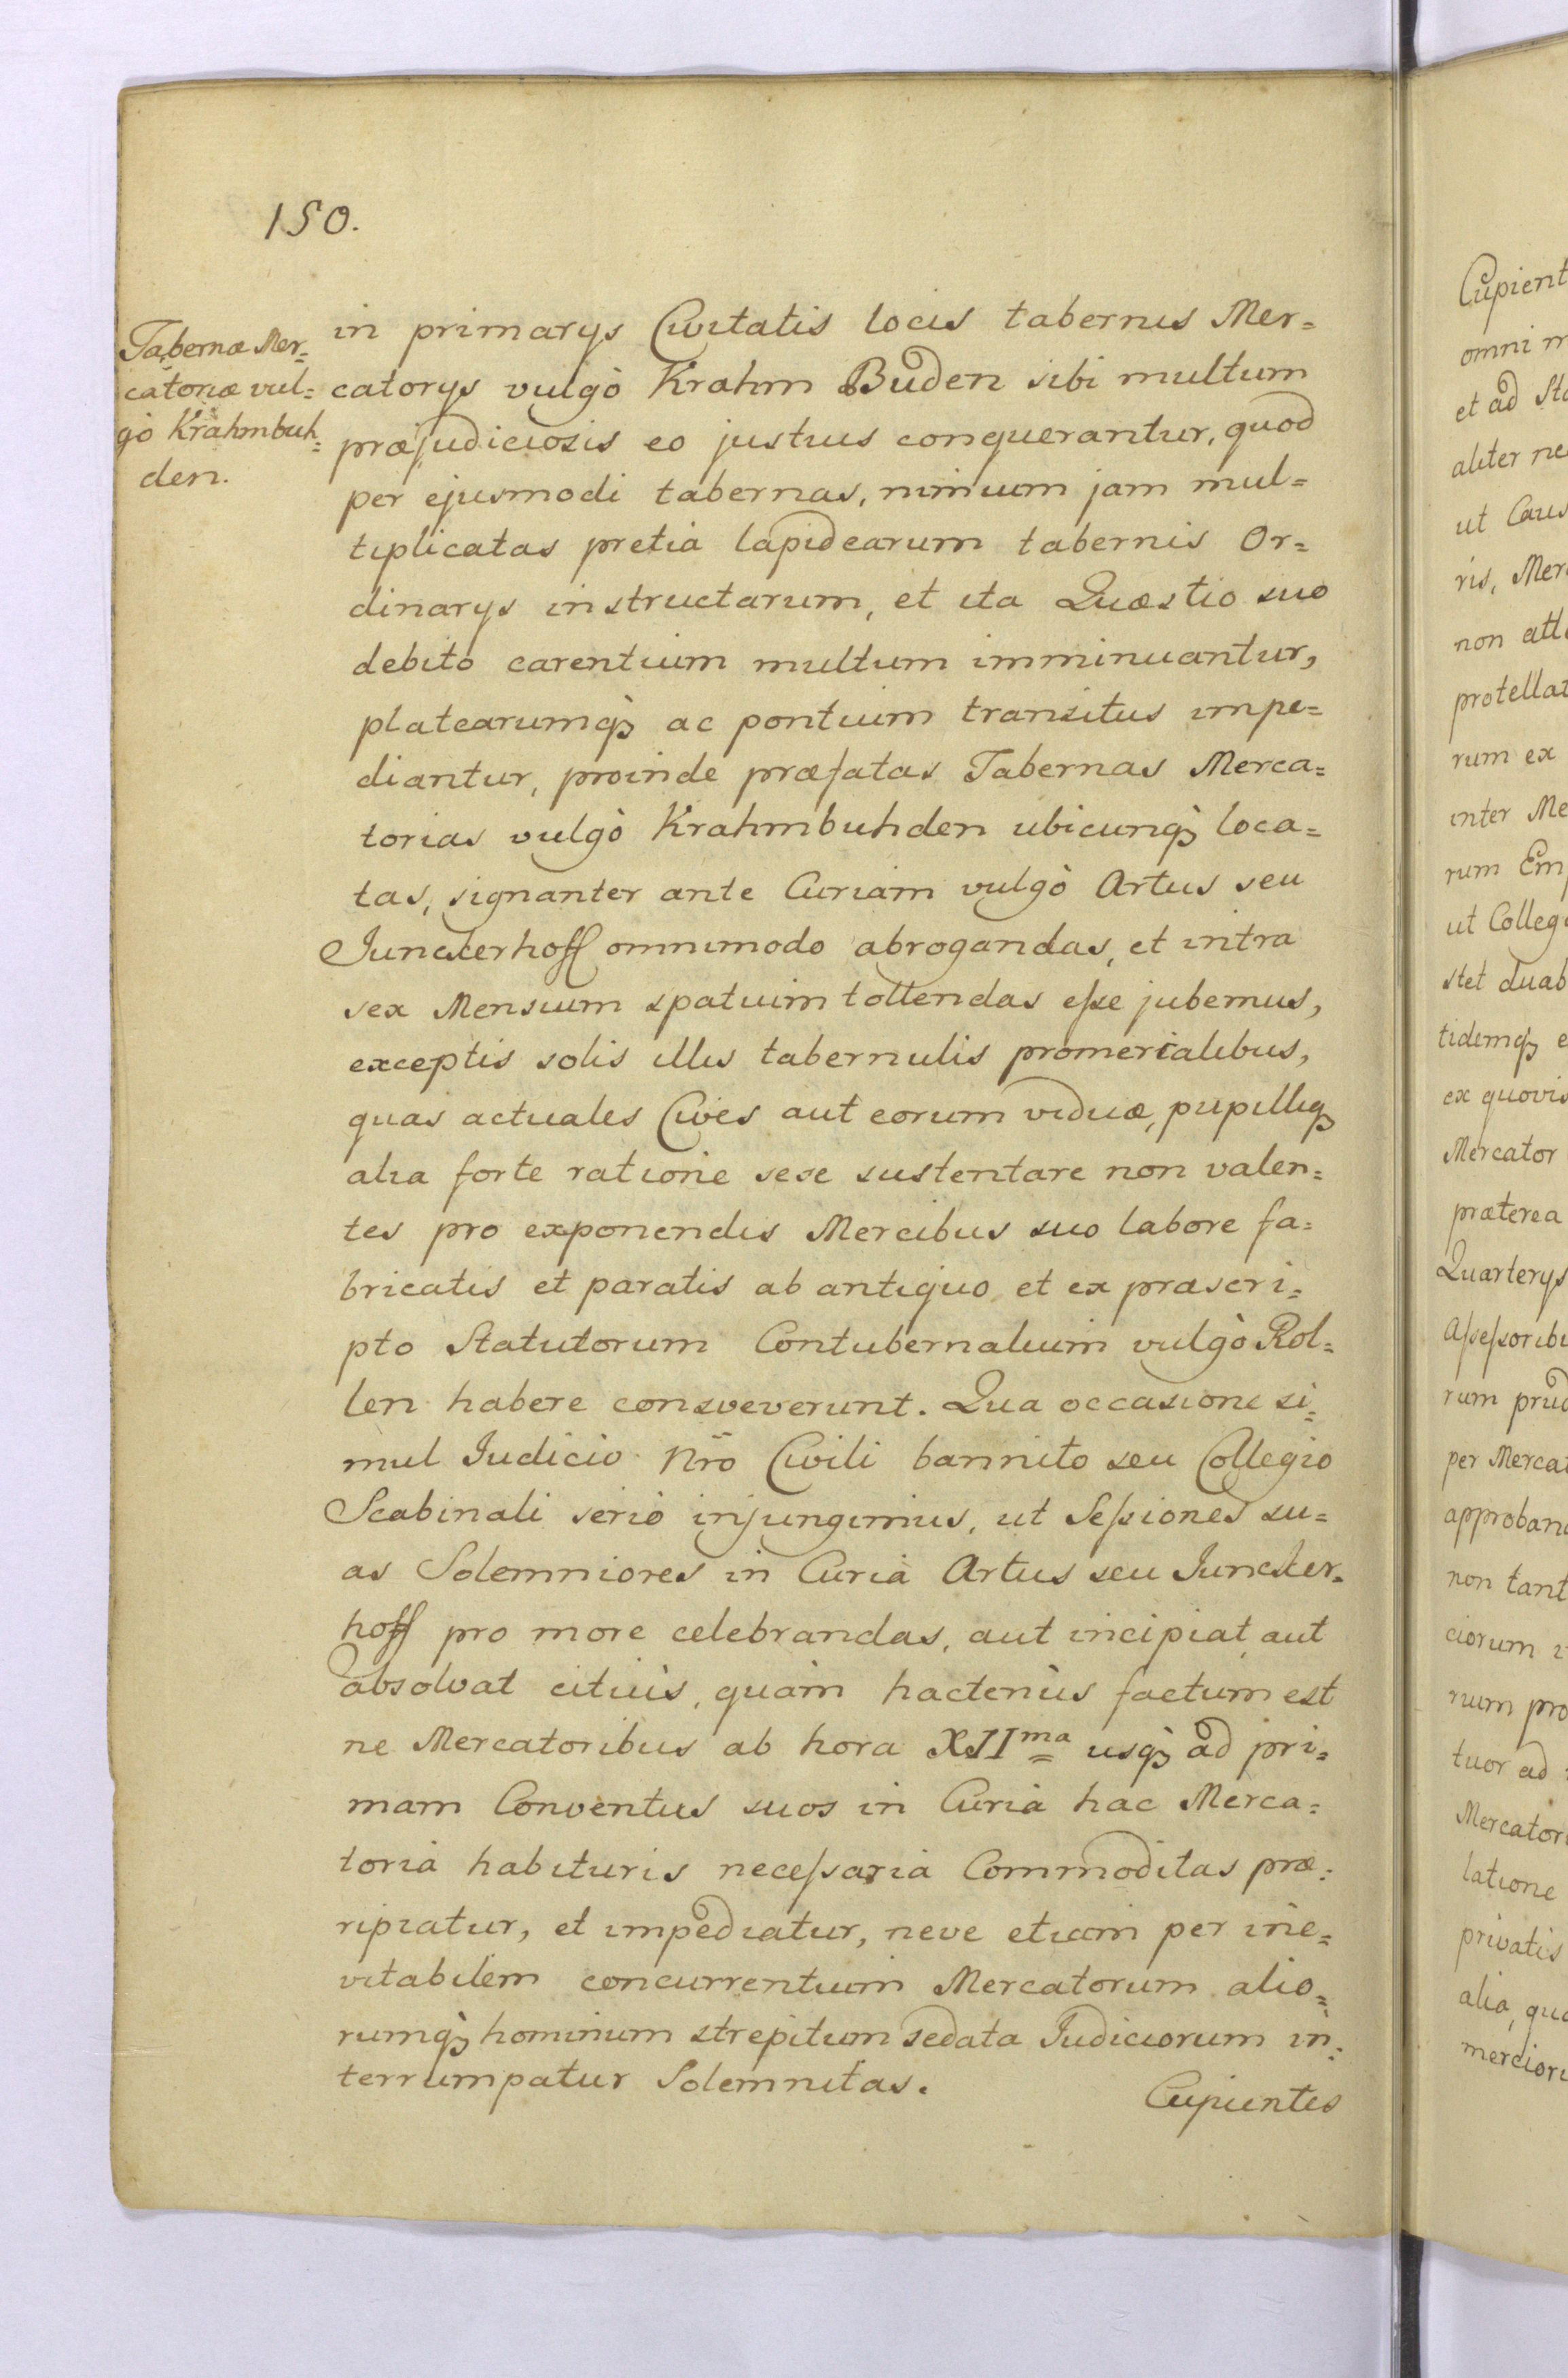 150.
Tabernæ Mer=
catoriæ vul=
gò Krahmbuh=
den.
in primarys Civitatis locis tabernis Mer=
catorys vulgò Krahm Buden sibi multum
præjudiciosis eo justius conquerantur, quod
per ejusmodi tabernas, nimium jam mul=
tiplicatas pretia lapidearum tabernis Or=
dinarys instructarum, et ita Quæstio suo
debito carentium multum imminuantur,
platearumqꝫ ac pontium transitus impe=
diantur, proinde præfatas Tabernas Merca=
torias vulgò Krahmbuhden ubicunqꝫ loca=
tas, signanter ante Curiam vulgò Artus seu
Junckerhoff omnimodo abrogandas, et intra
sex Mensium spatium tollendas eſse jubemus,
exceptis solis illis tabernulis promercalibus,
quas actuales Cives aut eorum viduæ, pupilliqꝫ
alia forte ratione sese sustentare non valen=
tes pro exponendis Mercibus suo labore fa=
bricatis et paratis ab antiquo et ex præscri=
pto Statutorum Contubernalium vulgò Rol=
len habere consveverunt. Qua occasione si=
mul Judicio Nr̃o Civili bannito seu Collegio
Scabinali seriò injungimus, ut Seſsiones su=
as Solemniores in Curia Artus seu Juncker=
hoff pro more celebrandas, aut incipiat, aut
absolvat citiùs, quàm hactenùs factum est
ne Mercatoribus ab hora XIIma usqꝫ ad pri=
mam Conventus suos in Curia hac Merca=
toria habituris neceſsaria Commoditas præ=
ripiatur, et impediatur, neve etiam per ine=
vitabilem concurrentium Mercatorum alio=
rumqꝫ hominum strepitum sedata Judiciorum in=
terrumpatur Solemnitas.
Cupientes
Cupient
omni m
et ad Sta
aliter ne
ut Caus
ris, Mer
non att
protellat
rum ex
inter Me
rum Em
ut Colleg
stet duab
tidemqꝫ e
ex quovis
Mercator
præterea
Quarterys
Aſseſsorib
rum prud
per Merca
approban
non tant
ciorum
rum pro
tuor ad
Mercator
latione
privatis
alia, qu
mercior